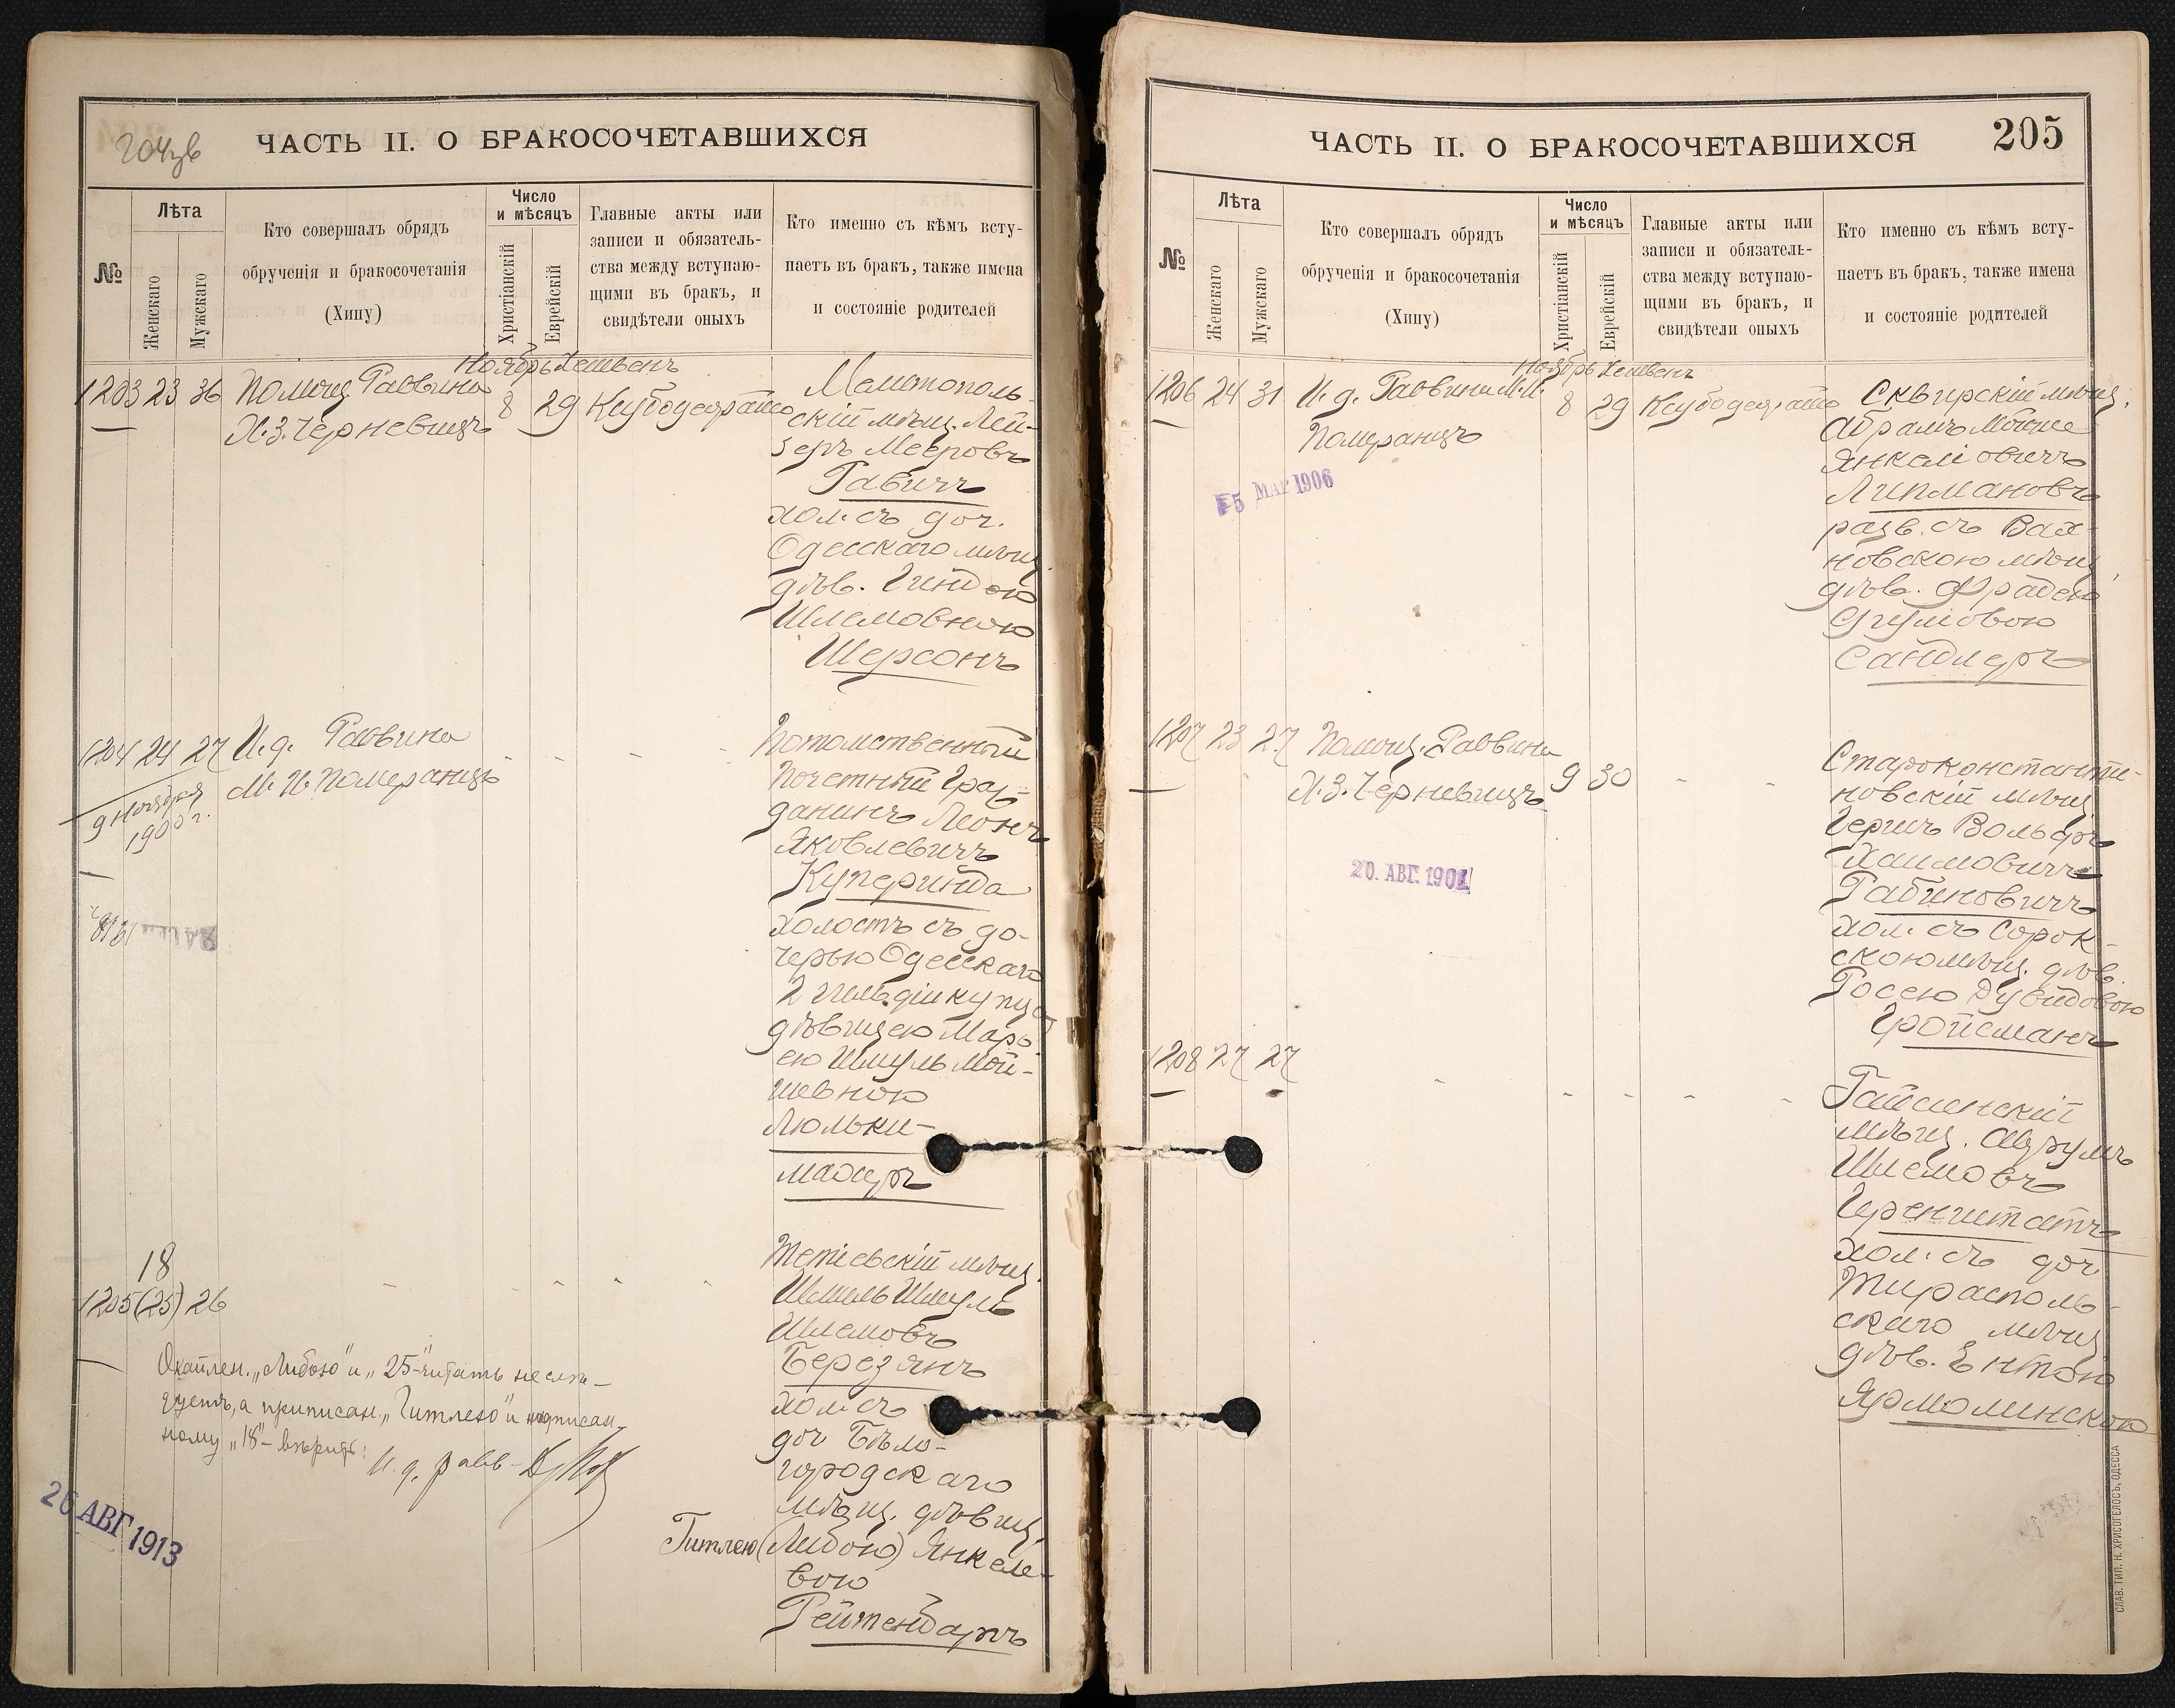 204 об
ЧАСТЬ II. О БРАКОСОЧЕТАВШИХСЯ
№
Лѣта
Женскаго
Мужскаго
Кто совершалъ обрядъ
обрученія и бракосочетанія
(Хипу)
Число
и мѣсяцъ
Христіанскій
Еврейскій
Главные акты или
записи и обязатель-
ства между вступаю-
щими въ бракъ, и
свидѣтели оныхъ
Кто именно съ кѣмъ всту-
паетъ въ бракъ, также имена
и состояніе родителей
Ноябрь Хешвенъ
1203 23 36
Помощ. Раввина
Х.З. Черневицъ
8 29
Мелитополь-
скій мѣщ. Лей-
зеръ Мееровъ
Рабичъ
хол. съ доч.
Одесскаго мѣщ.
дѣв. Гиндою
Шлемовною
Шерсонъ
1204 24 27
И. д. Раввина
М. И. Померанцъ
9 Ноября
1900 г.
Потомственный
Почетный Граж-
данинъ Леонъ
Яковлевичъ
холостъ съ до-
черью Одесскаго
2 гильдіи купца
дѣвицею Марь-
ею Шмуль Мой-
шевною
Люльки-
махеръ
18
1205 (25) 26
Тетіевскій мѣщ.
Шмиль Шмуль
Шлемовъ
Березянъ
хол. съ
доч Бѣло-
городскаго
мѣщ. дѣвиц.
Гитлею (Либою) Янкеле-
вою
Рейтендаръ
"Либою" и "25" читать не слѣ-
дуетъ, а приписан. "Гитлею" и надписан-
ному "18" - вѣрить:
И. д. равв-
26 АВГ 1913
205
ЧАСТЬ II. О БРАКОСОЧЕТАВШИХСЯ
№
Лѣта
Женскаго
Мужскаго
Кто совершалъ обрядъ
обрученія и бракосочетанія
(Хипу)
Число
и мѣсяцъ
Христіанскій
Еврейскій
Главные акты или
записи и обязатель-
ства между вступаю-
щими въ бракъ, и
свидѣтели оныхъ
Кто именно съ кѣмъ всту-
паетъ въ бракъ, также имена
и состояніе родителей
Ноябрь Хешвенъ
1206 24 31
И. д. Раввина М. И.
Померанцъ
8 29
5 МАР 1906
Сквирскій мѣщ.
Абрамъ Мойше
Янкеліовичъ
Липмановъ
разв. съ Вах-
новскою мѣщ.
дѣв. Фрадею
Сруліовою
Сандлеръ
1207 23 27
Помощ. Раввина
Х.З. Черневицъ
9 30
20. АВГ. 1901
Староконстанти-
новскій мѣщ.
Гершъ Вольфъ
Хаимовичъ
Рабиновичъ
хол. съ Сорок-
скою мѣщ. дѣв.
Росею Дувидовою
Гройсманъ
1208 27 27
Гайсинскій
мѣщ. Аврумъ
Шлемовъ
Геренштатъ
хол. съ доч.
Тирасполь-
скаго мѣщ
дѣв. Ентою
Ярмолинскою
СЛАВ. ТИП. Н. ХРИСОГЕЛОСЪ, ОДЕССА